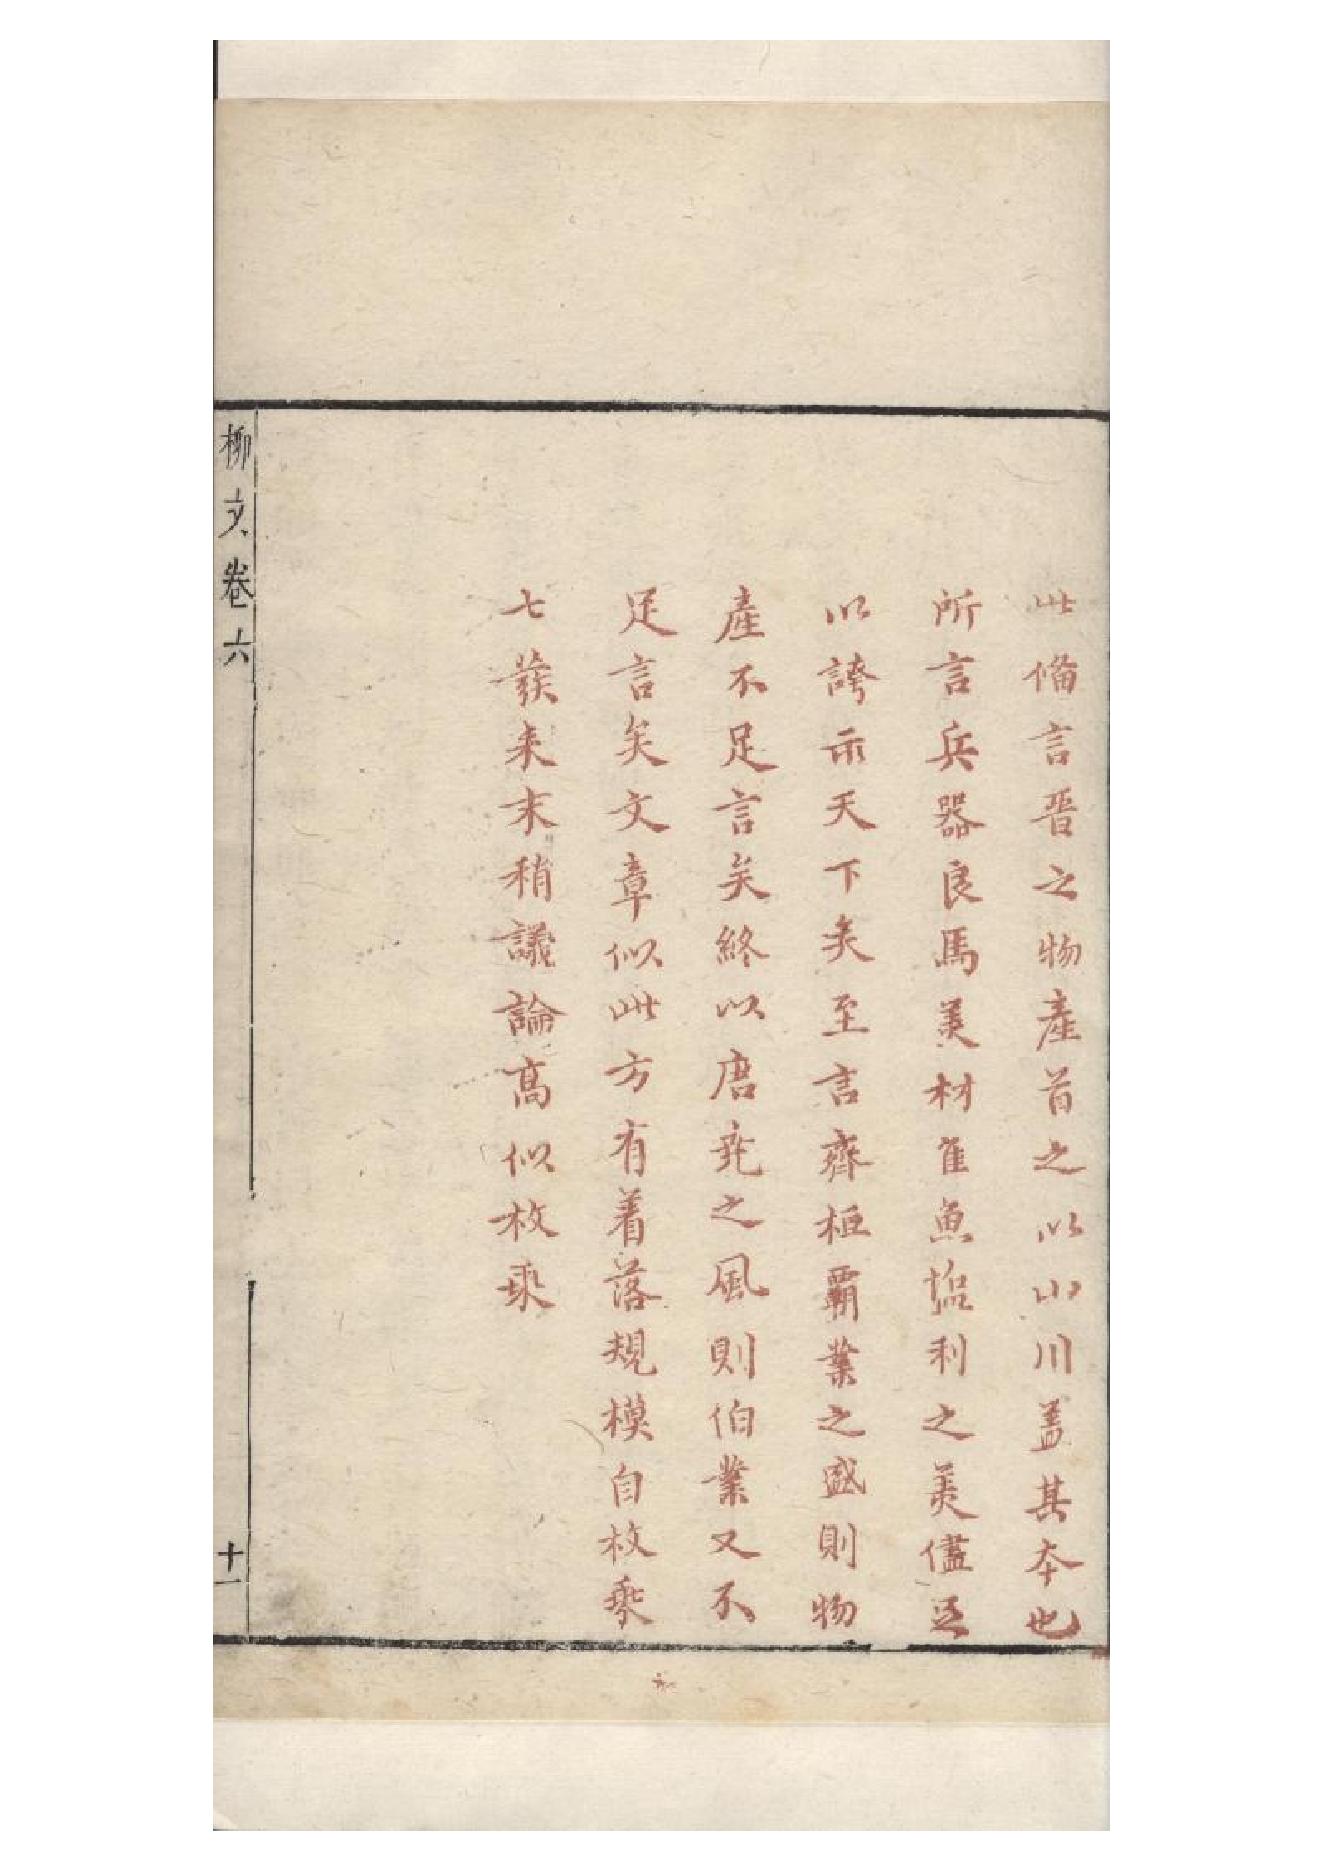 此備言晋之物產首之以山川盖其本也
所言兵器良馬美材隹魚塩利之美儘足
以誇示天下矣至言齊桓覇業之盛則物
產不足言矣終以唐尭之風則伯業又不
足言矣文章似此方有着落規模自枚乘
七發来末稍議論髙似枚乘
柳文卷六
十一